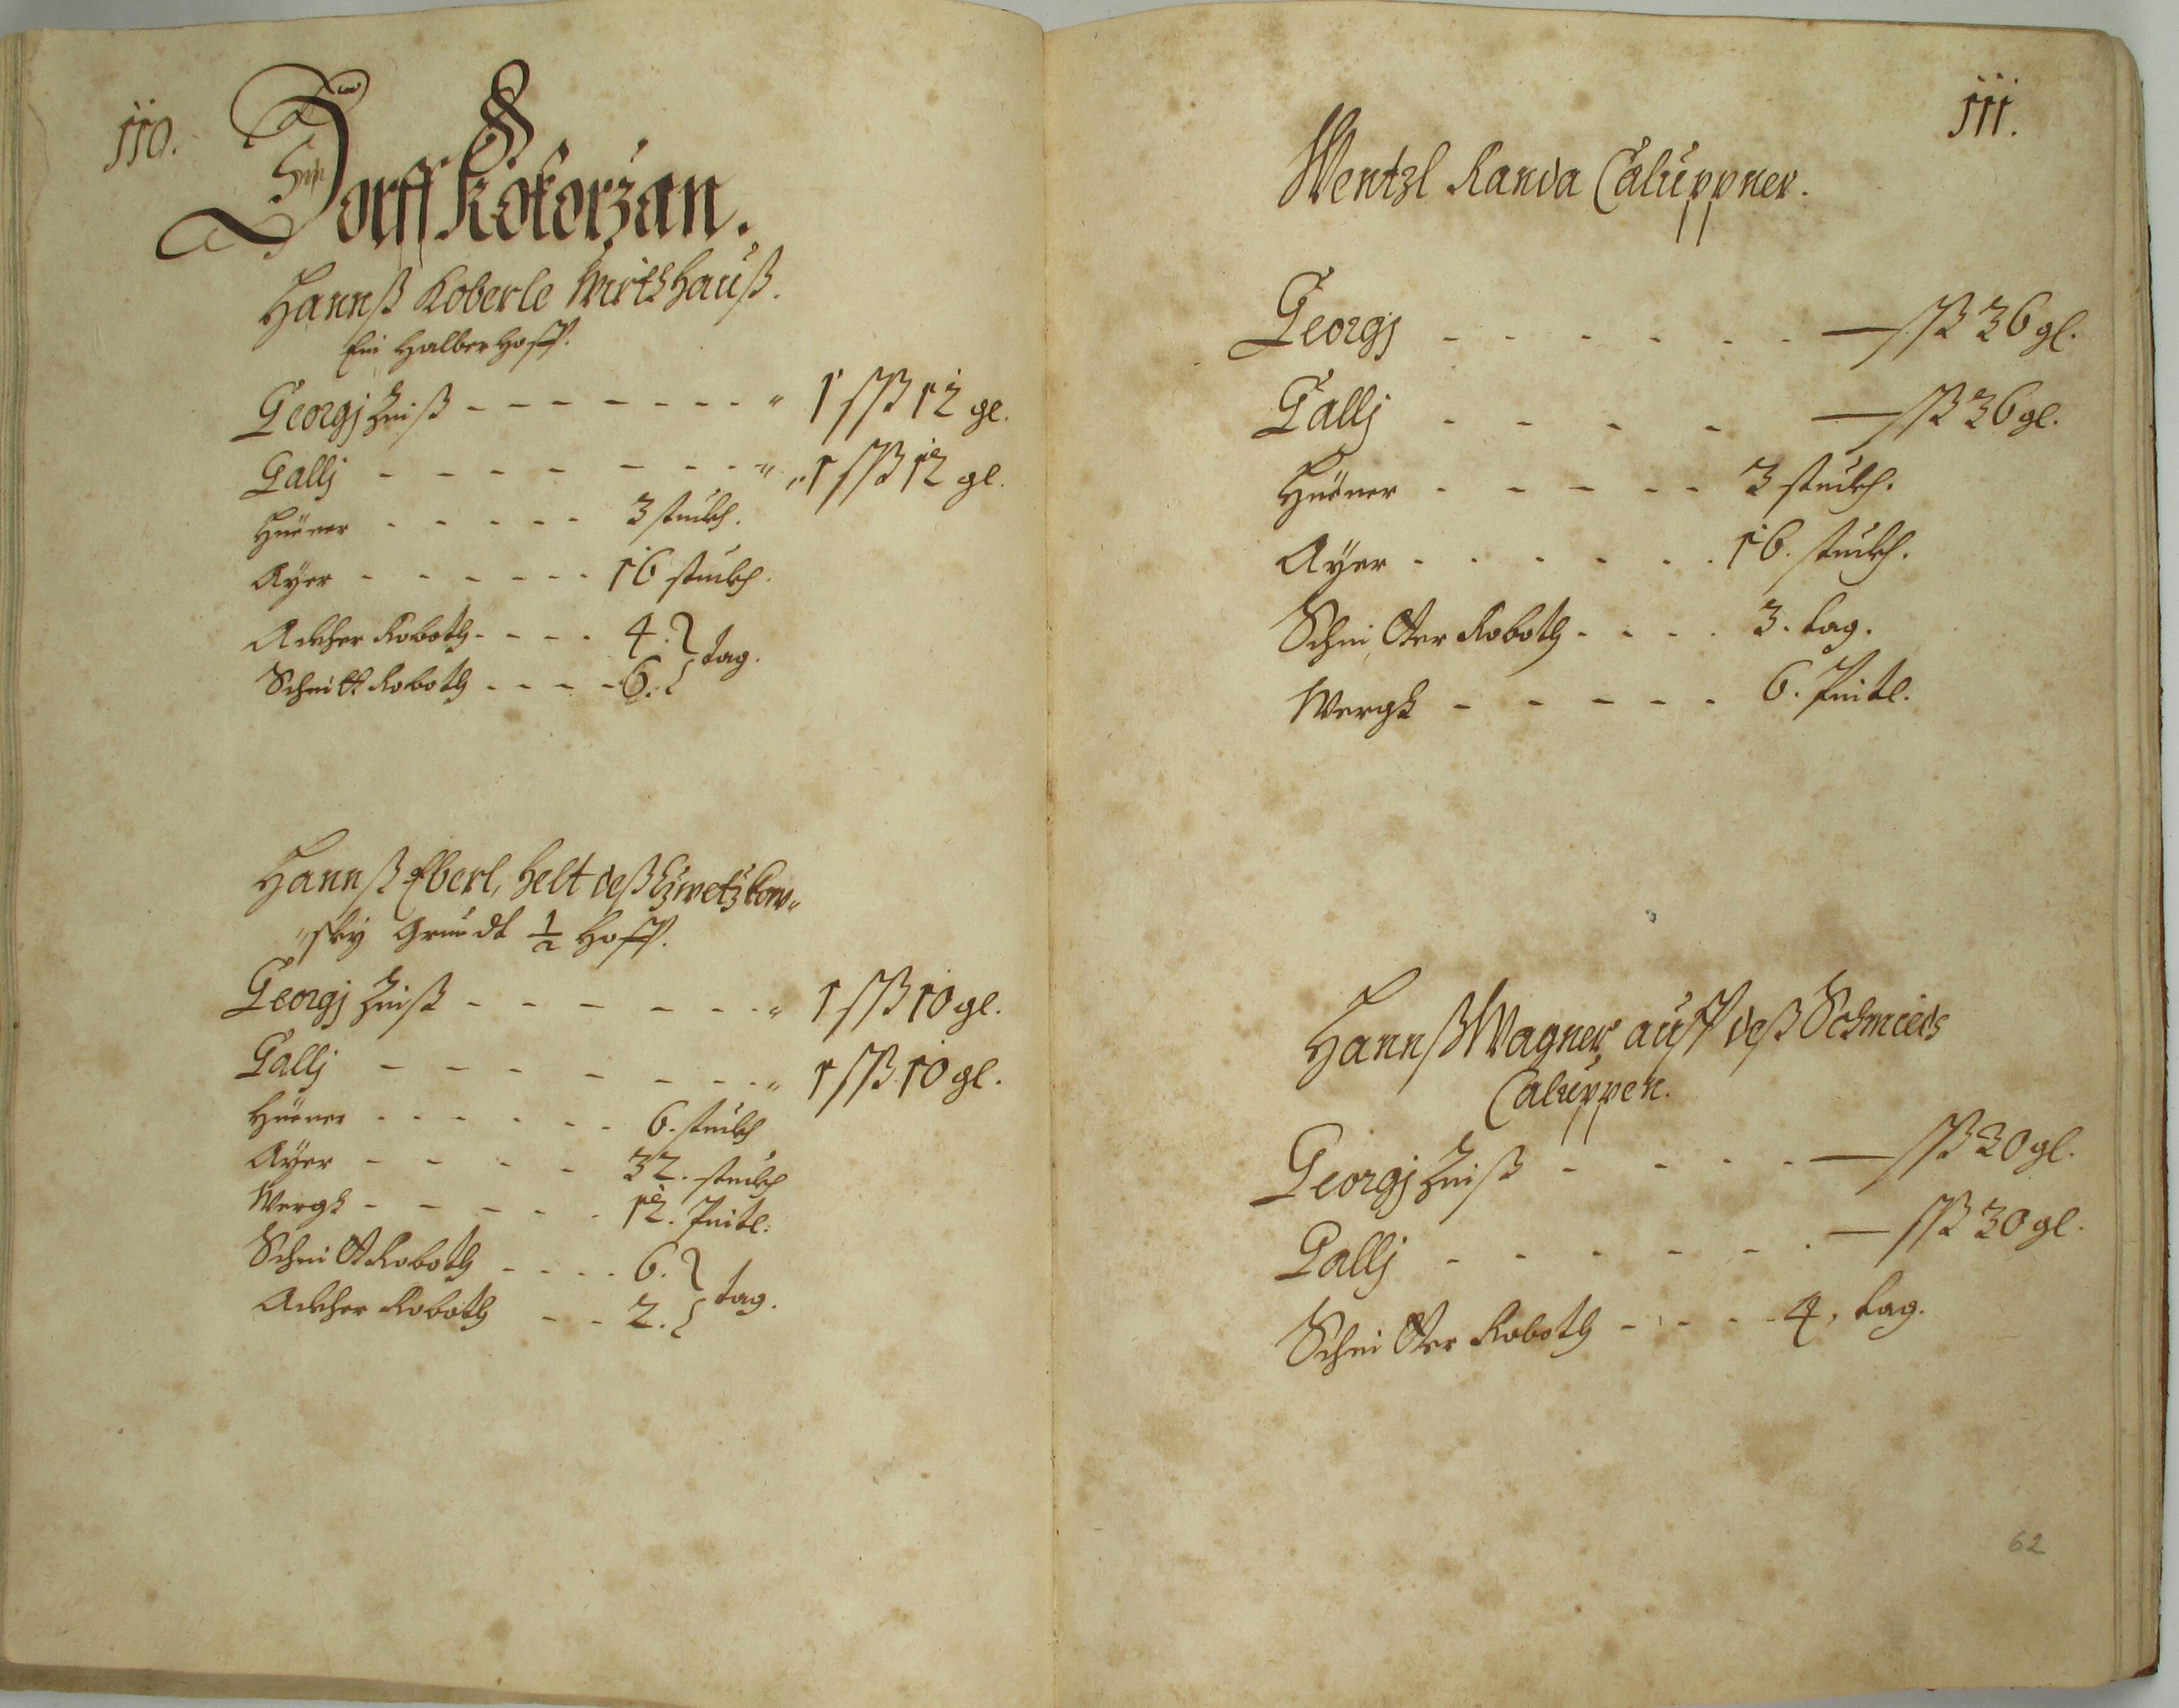 110.
Dorff Kokorzan.
Hannß Koberle Wirthhauß.
Ein Halber Hoff.
Georgj Zinß - - - - - - - - " 1 ßß 12 gl.
Gallj - - - - - - - - " " 1 ßß 12 gl.
Hüener - - - - - 3 stuckh.
Ayer - - - - - - 16 stuckh.
Ackher Roboth - - - - 4.
tag.
Schnitt Roboth - - - - 6.
Hannß Eberl, helt deß
"sky Grundt 1/2 Hoff.
Georgj Zinß - - - - - - - " 1 ßß 10 gl.
Gallj - - - - - - - - " 1 ßß 10 gl.
Hüener - - - - - - 6. stuckh
Ayer - - - - 32. stuckh
Wergk - - - - - 12.
Schnitt Roboth - - - - 6.
tag.
Ackher Roboth - - 2.
111.
Wentzl Randa Caluppner.
Georgj - - - - - - - — ßß 36 gl.
Gallj - - - - — ßß 36 gl.
Hüener - - - - - 3 stuckh.
Ayer - - - - - - 16. stuckh.
Schnitter Roboth - - - - 3. tag.
Wergk - - - - - 6.
Hannß Wagner, auff deß Schmieds
Caluppen.
Georgj Zinß - - - - — ßß 30 gl.
Gallj - - - - - - — ßß 30 gl.
Schnitter Roboth - - - - 4. tag.
62